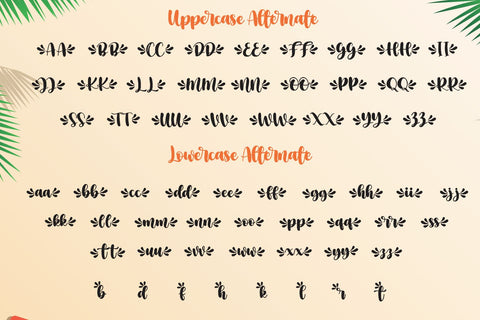 Uppercase Alternate
AA BB CC DD EE FF GG HH II
JJ KK LL MM NN OO PP QQ RR
SS TT UU VV WW XX YY ZZ
Lowercase Alternate
aa bb cc dd ee ff gg hh ii jj
kk ll mm nn oo pp qq rr ss
tt uu vv ww xx yy zz
b d f h k l r t